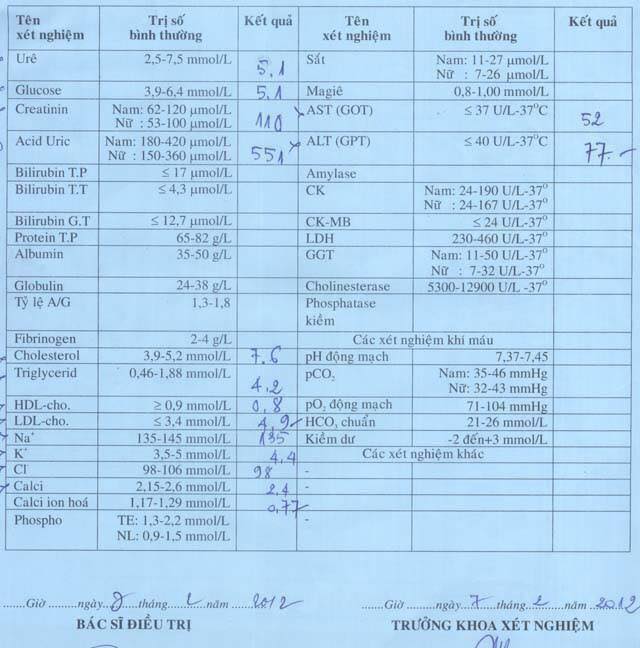 Tên xét nghiệm Trị số bình thường Kết quả Tên xét nghiệm Trị số bình thường Kết quả
Urê 2,5-7,5 mmol/L 5.1 Sắt Nam: 11-27 μmol/L
Nữ : 7-26 μmol/L
Glucose 3,9-6,4 mmol/L 5.1 Magiê 0,8-1,00 mmol/L
Creatinin Nam: 62-120 μmol/L 110 AST (GOT) ≤ 37 U/L-37°C 52
Nữ : 53-100 μmol/L
Acid Uric Nam: 180-420 μmol/L 551 ALT (GPT) ≤ 40 U/L-37°C 77
Nữ : 150-360 μmol/L
Bilirubin T.P ≤ 17 μmol/L Amylase
Bilirubin T.T ≤ 4,3 μmol/L CK Nam: 24-190 U/L-37°
Nữ : 24-167 U/L-37°
Bilirubin G.T ≤ 12,7 μmol/L CK-MB ≤ 24 U/L-37°
Protein T.P 65-82 g/L LDH 230-460 U/L-37°
Albumin 35-50 g/L GGT Nam: 11-50 U/L-37°
Nữ : 7-32 U/L-37°
Globulin 24-38 g/L Cholinesterase 5300-12900 U/L -37°
Tỷ lệ A/G 1,3-1,8 Phosphatase kiềm
Fibrinogen 2-4 g/L Các xét nghiệm khí máu
Cholesterol 3,9-5,2 mmol/L 7.6 pH động mạch 7,37-7,45
Triglycerid 0,46-1,88 mmol/L 4.2 pCO₂ Nam: 35-46 mmHg
Nữ: 32-43 mmHg
HDL-cho. ≥ 0,9 mmol/L 0.8 pO₂ động mạch 71-104 mmHg
LDL-cho. ≤ 3,4 mmol/L 4.9 HCO₃ chuẩn 21-26 mmol/L
Na⁺ 135-145 mmol/L 135 Kiềm dư -2 đến+3 mmol/L
K⁺ 3,5-5 mmol/L 4.4 Các xét nghiệm khác
Cl⁻ 98-106 mmol/L 98 -
Calci 2,15-2,6 mmol/L 2.4 -
Calci ion hoá 1,17-1,29 mmol/L 0,77 -
Phospho TE: 1,3-2,2 mmol/L -
NL: 0,9-1,5 mmol/L
......Giờ .........ngày.......tháng.......năm ......2012 ......Giờ .........ngày..7..tháng..2..năm ..2012
BÁC SĨ ĐIỀU TRỊ TRƯỞNG KHOA XÉT NGHIỆM